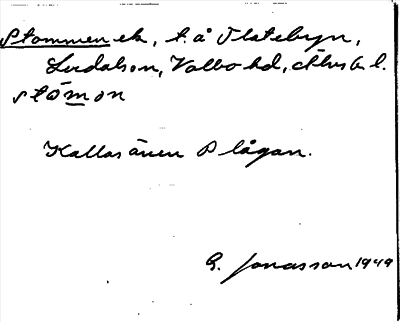 Stommen ek, t. å Ulatebyn,
Lerdalson, Valbo hd, Älvsb l.
stömon
Kallas även Plågan.
G. Jonasson 1949